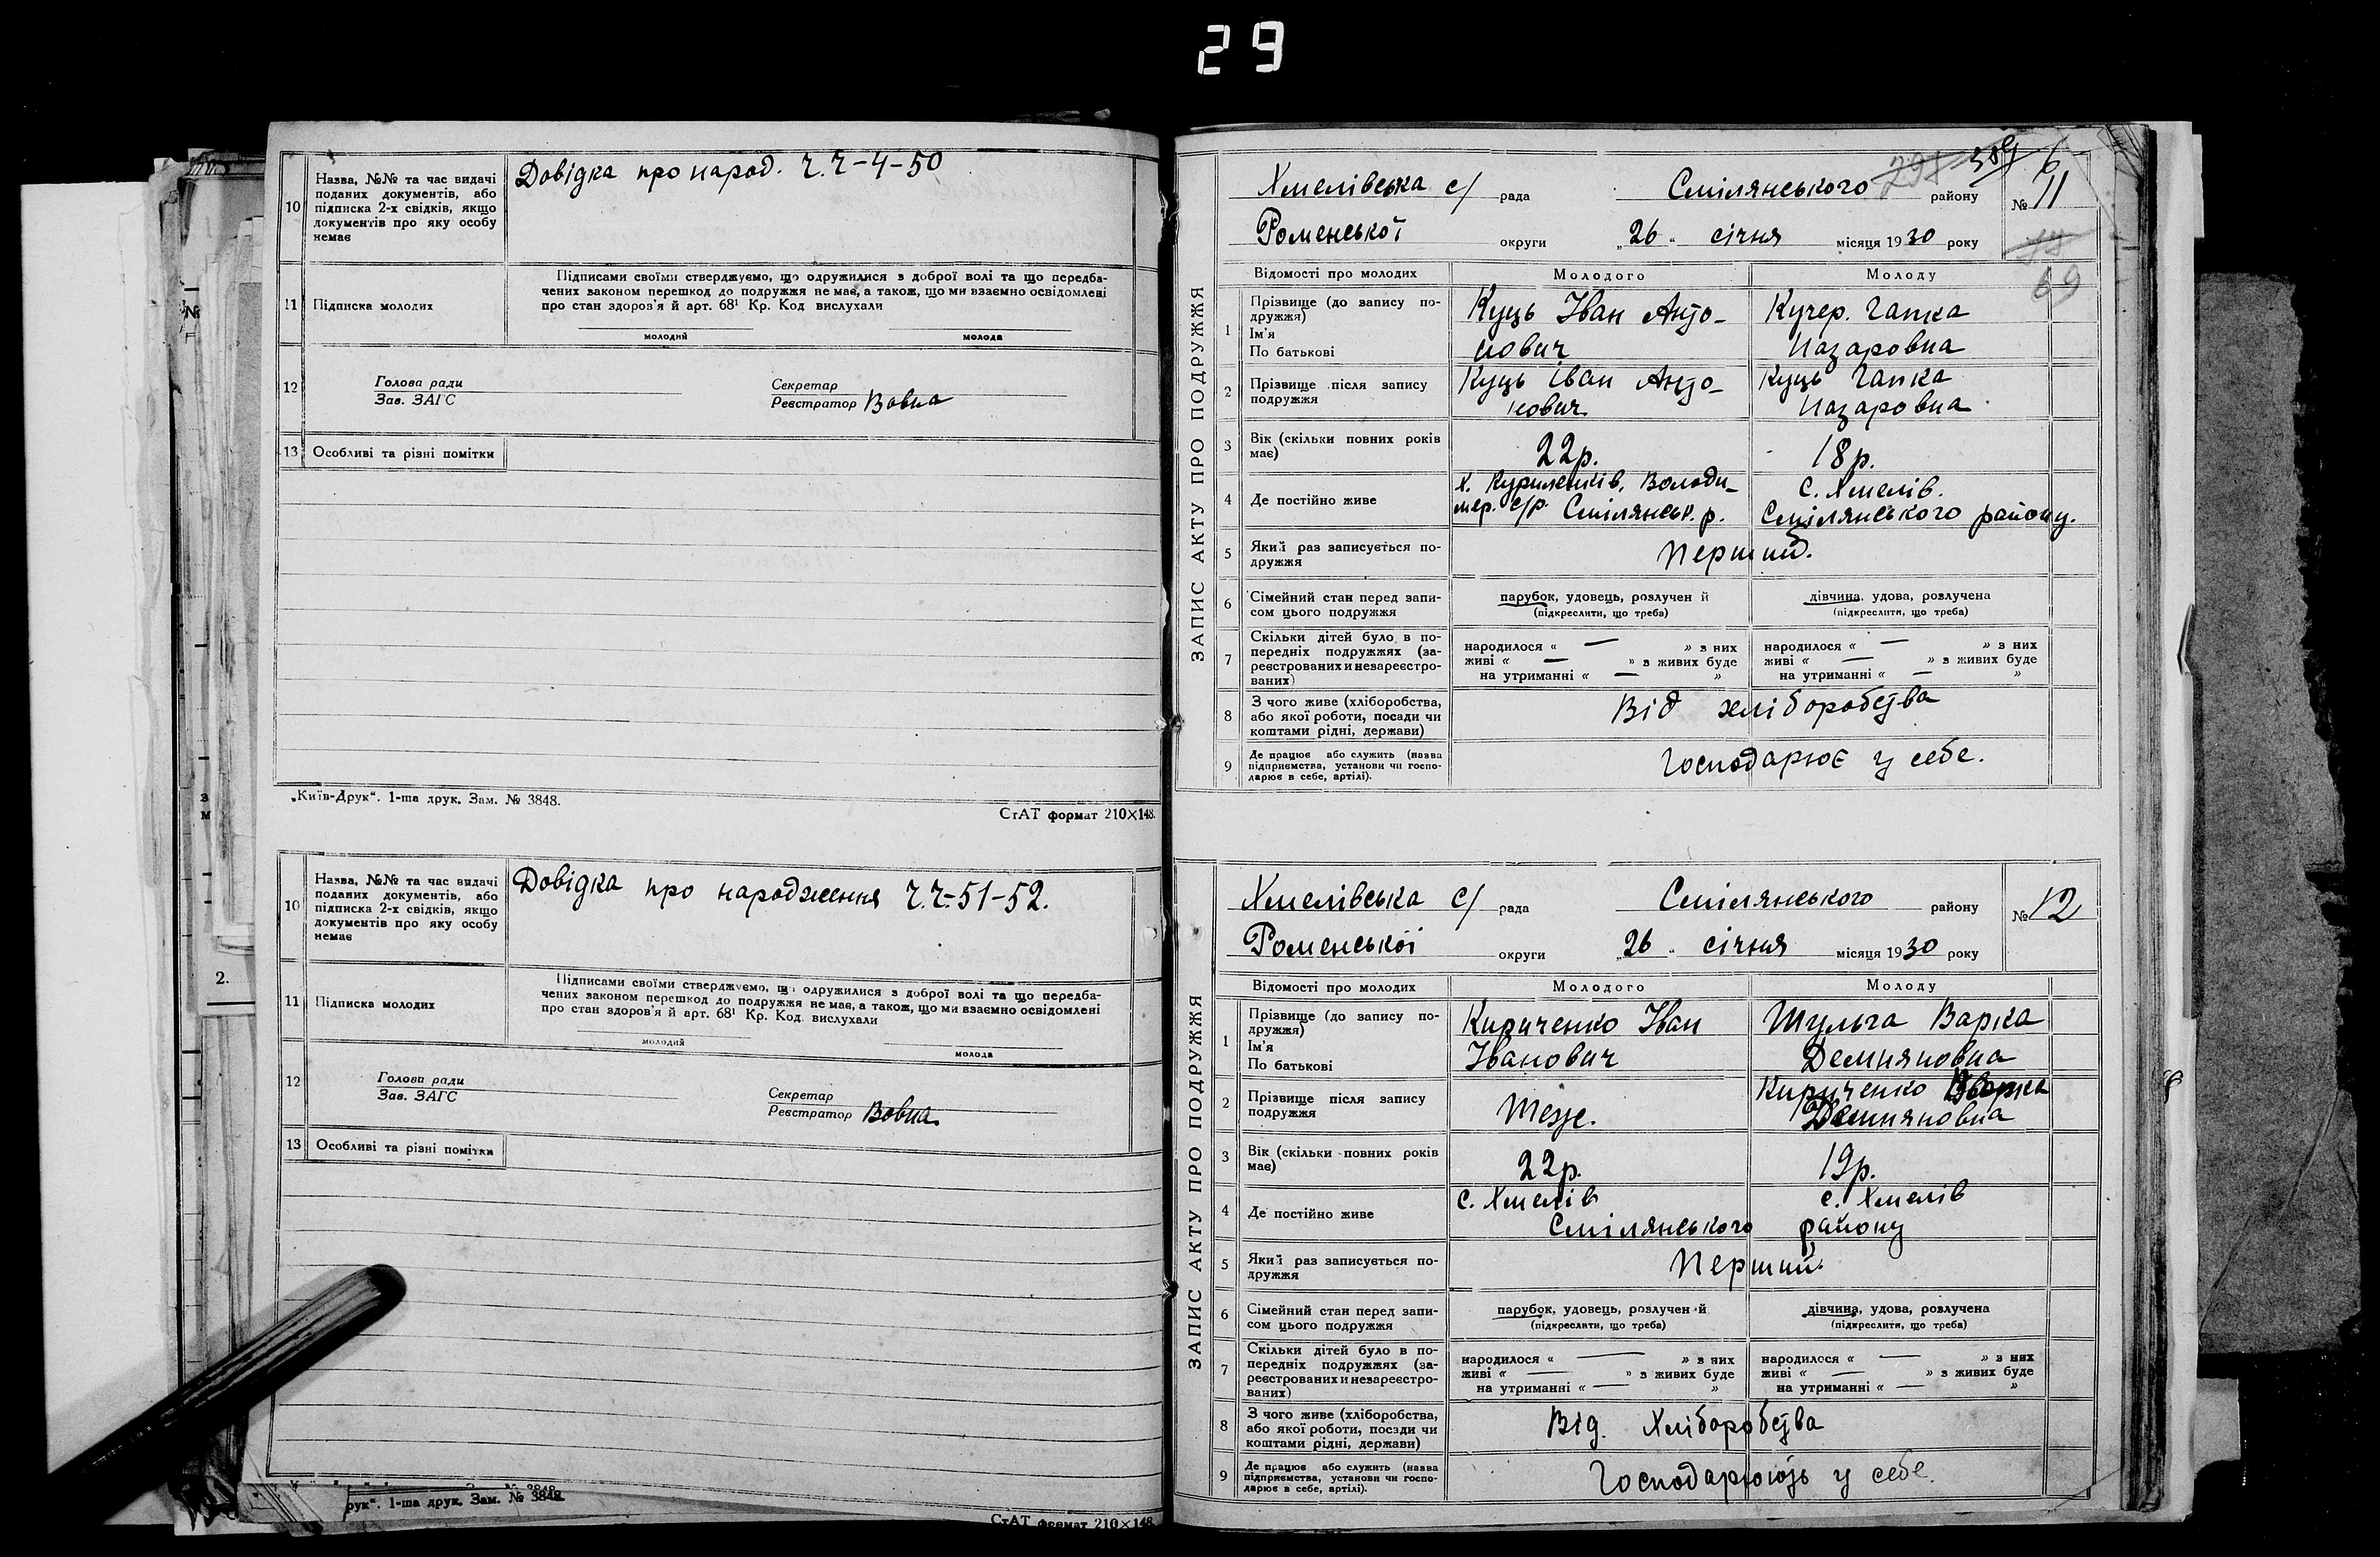 29
10 Назва, №№ та час видачі
поданих документів, або
підписка 2-х свідків, якщо
документів про яку особу
немає
Довідка про народ. ч.ч-4-50
11 Підписка молодих
Підписами своїми стверджуємо, що одружилися з доброї волі та що передба-
чених законом перешкод до подружжя не має, а також, що ми взаємно освідомлені
про стан здоров'я й арт. 68¹ Кр. Код вислухали
молодий молода
12 Голова ради
Зав. ЗАГС
Секретар
Реєстратор Вовна
13 Особливі та різні помітки
„Київ-Друк“. 1-ша друк. Зам. № 3848.
СтАТ формат 210×148.
10 Назва, №№ та час видачі
поданих документів, або
підписка 2-х свідків, якщо
документів про яку особу
немає
Довідка про народження ч.ч-51-52.
11 Підписка молодих
Підписами своїми стверджуємо, що одружилися з доброї волі та що передба-
чених законом перешкод до подружжя не має, а також, що ми взаємно освідомлені
про стан здоров'я й арт. 68¹ Кр. Код. вислухали
молодий молода
12 Голова ради
Зав. ЗАГС
Секретар
Реєстратор Вовна
13 Особливі та різні помітки
рук“. 1-ша друк. Зам. № 3848
СтАТ формат 210×148.
2.
ЗАПИС АКТУ ПРО ПОДРУЖЖЯ
Хмелівська с/ рада Смілянського району № 11
6
69
Роменської округи „26“ січня місяця 1930 року
Відомості про молодих Молодого Молоду
1 Прізвище (до запису по-
дружжя)
Ім'я
По батькові
Куць Іван Анто-
нович
Кучер. Гапка
Назаровна
2 Прізвище після запису
подружжя
Куць Іван Анто-
нович
Куць Гапка
Назаровна
3 Вік (скільки повних років
має)
22р. 18р.
4 Де постійно живе
х. Куриленків, Володи-
мер. с/р. Смілянськ. р.
с. Хмелів.
Смілянського району.
5 Який раз записується по-
дружжя
Перший.
6 Сімейний стан перед запи-
сом цього подружжя
парубок, удовець, розлучен й
(підкреслити, що треба)
дівчина, удова, розлучена
(підкреслити, що треба)
7 Скільки дітей було в по-
передніх подружжях (за-
реєстрованих и незареєстро-
ваних)
народилося « — » з них
живі « — » з живих буде
на утриманні « — »
народилося « — » з них
живі « — » з живих буде
на утриманні « — »
8 З чого живе (хліборобства,
або якої роботи, посади чи
коштами рідні, держави)
Від хліборобства
9 Де працює або служить (назва
підприємства, установи чи госпо-
дарює в себе, артілі).
Господарює у себе.
ЗАПИС АКТУ ПРО ПОДРУЖЖЯ
Хмелівська с/ рада Смілянського району № 12
Роменської округи „26“ січня місяця 1930 року
Відомості про молодих Молодого Молоду
1 Прізвище (до запису по-
дружжя)
Ім'я
По батькові
Кириченко Іван
Іванович
Шульга Варка
Демняновна
2 Прізвище після запису
подружжя
Теж.
Кириченко Варка
Демняновна
3 Вік (скільки повних років
має)
22р. 19р.
4 Де постійно живе
с. Хмелів с. Хмелів
Смілянського району
5 Який раз записується по-
дружжя
Перший.
6 Сімейний стан перед запи-
сом цього подружжя
парубок, удовець, розлучен й
(підкреслити, що треба)
дівчина, удова, розлучена
(підкреслити, що треба)
7 Скільки дітей було в по-
передніх подружжях (за-
реєстрованих и незареєстро-
ваних)
народилося « — » з них
живі « — » з живих буде
на утриманні « — »
народилося « — » з них
живі « — » з живих буде
на утриманні « — »
8 З чого живе (хліборобства,
або якої роботи, посади чи
коштами рідні, держави)
Від. Хліборобства
9 Де працює або служить (назва
підприємства, установи чи госпо-
дарює в себе, артілі).
Господарюють у себе.